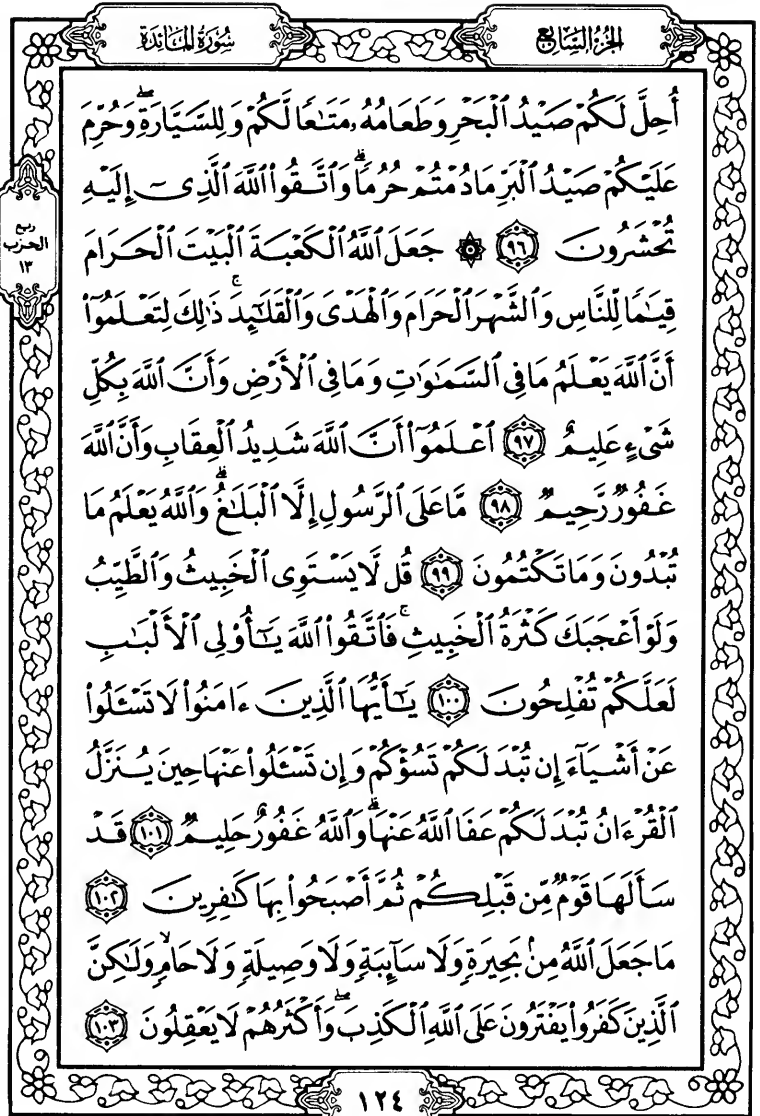 سُورَةُ المَائدَة
الجُزءُ السَّابِع
أُحِلَّ لَكُمْ صَيْدُ ٱلْبَحْرِ وَطَعَامُهُۥ مَتَـٰعًا لَّكُمْ وَلِلسَّيَّارَةِۖ وَحُرِّمَ
عَلَيْكُمْ صَيْدُ ٱلْبَرِّ مَا دُمْتُمْ حُرُمًاۗ وَٱتَّقُوا۟ ٱللَّهَ ٱلَّذِىٓ إِلَيْهِ
تُحْشَرُونَ ٩٦ ۞ جَعَلَ ٱللَّهُ ٱلْكَعْبَةَ ٱلْبَيْتَ ٱلْحَرَامَ
قِيَـٰمًا لِّلنَّاسِ وَٱلشَّهْرَ ٱلْحَرَامَ وَٱلْهَدْىَ وَٱلْقَلَـٰٓئِدَۚ ذَٰلِكَ لِتَعْلَمُوٓا۟
أَنَّ ٱللَّهَ يَعْلَمُ مَا فِى ٱلسَّمَـٰوَٰتِ وَمَا فِى ٱلْأَرْضِ وَأَنَّ ٱللَّهَ بِكُلِّ
شَىْءٍ عَلِيمٌ ٩٧ ٱعْلَمُوٓا۟ أَنَّ ٱللَّهَ شَدِيدُ ٱلْعِقَابِ وَأَنَّ ٱللَّهَ
غَفُورٌ رَّحِيمٌ ٩٨ مَّا عَلَى ٱلرَّسُولِ إِلَّا ٱلْبَلَـٰغُۗ وَٱللَّهُ يَعْلَمُ مَا
تُبْدُونَ وَمَا تَكْتُمُونَ ٩٩ قُل لَّا يَسْتَوِى ٱلْخَبِيثُ وَٱلطَّيِّبُ
وَلَوْ أَعْجَبَكَ كَثْرَةُ ٱلْخَبِيثِۚ فَٱتَّقُوا۟ ٱللَّهَ يَـٰٓأُو۟لِى ٱلْأَلْبَـٰبِ
لَعَلَّكُمْ تُفْلِحُونَ ١٠٠ يَـٰٓأَيُّهَا ٱلَّذِينَ ءَامَنُوا۟ لَا تَسْـَٔلُوا۟
عَنْ أَشْيَآءَ إِن تُبْدَ لَكُمْ تَسُؤْكُمْ وَإِن تَسْـَٔلُوا۟ عَنْهَا حِينَ يُنَزَّلُ
ٱلْقُرْءَانُ تُبْدَ لَكُمْ عَفَا ٱللَّهُ عَنْهَاۗ وَٱللَّهُ غَفُورٌ حَلِيمٌ ١٠١ قَدْ
سَأَلَهَا قَوْمٌ مِّن قَبْلِكُمْ ثُمَّ أَصْبَحُوا۟ بِهَا كَـٰفِرِينَ ١٠٢
مَا جَعَلَ ٱللَّهُ مِنۢ بَحِيرَةٍ وَلَا سَآئِبَةٍ وَلَا وَصِيلَةٍ وَلَا حَامٍۙ وَلَـٰكِنَّ
ٱلَّذِينَ كَفَرُوا۟ يَفْتَرُونَ عَلَى ٱللَّهِ ٱلْكَذِبَۖ وَأَكْثَرُهُمْ لَا يَعْقِلُونَ ١٠٣
ربع
الحزب
١٣
١٢٤